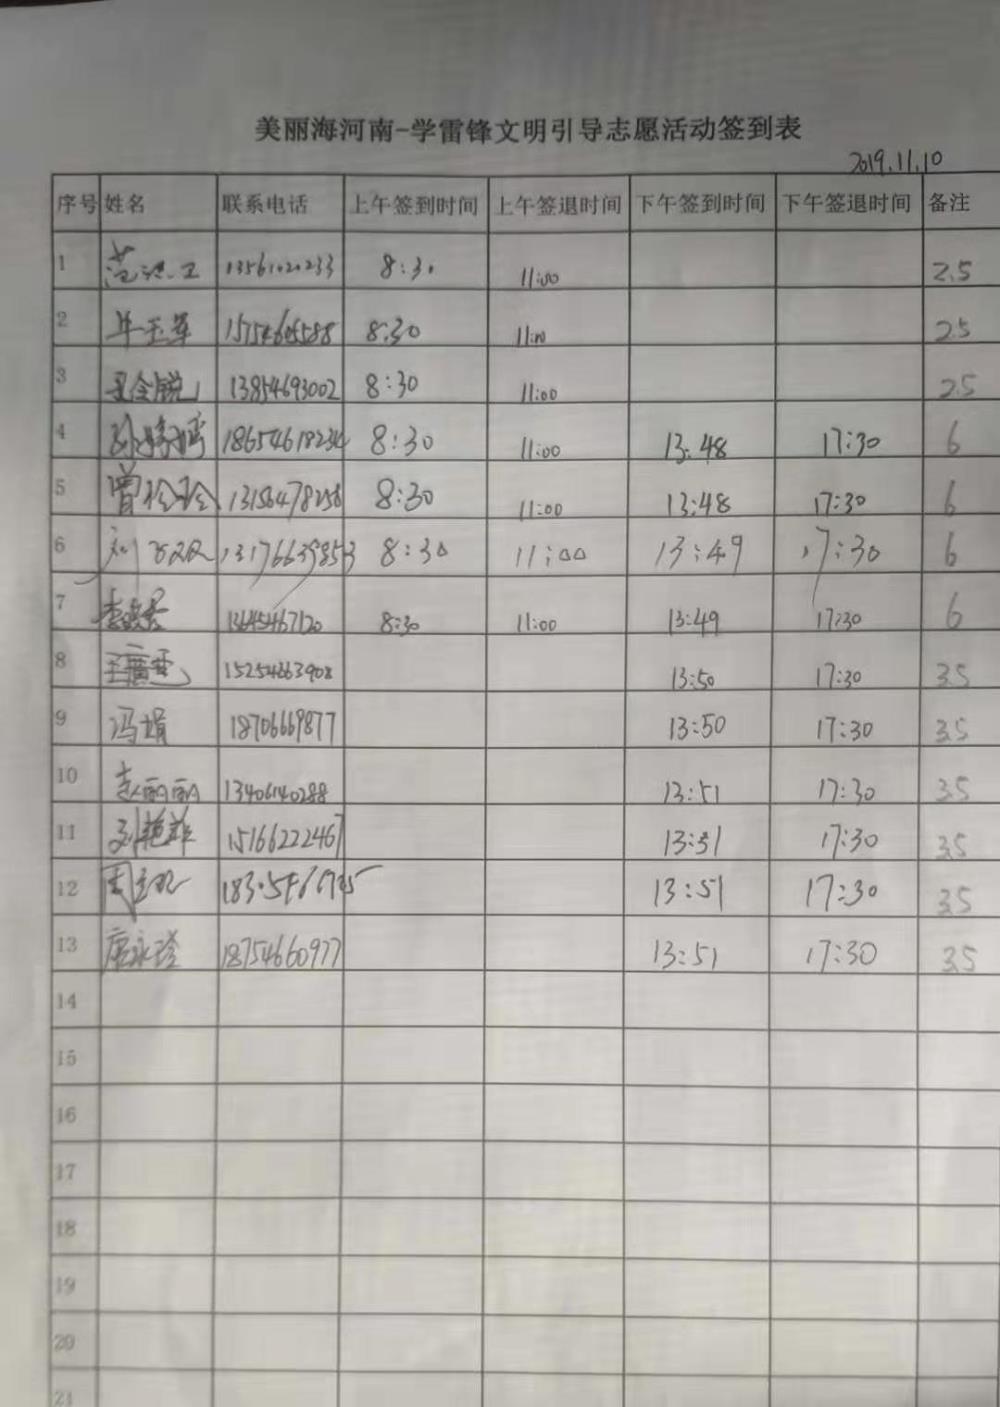 美丽海河南-学雷锋文明引导志愿活动签到表
2019.11.10
序号 姓名 联系电话 上午签到时间 上午签退时间 下午签到时间 下午签退时间 备注
1 8:30 11:00 2.5
2 8:30 11:00 2.5
3 13854693002 8:30 11:00 2.5
4 8:30 11:00 13:48 17:30 6
5 曾玲玲 13156478256 8:30 11:00 13:48 17:30 6
6 刘 13176639853 8:30 11:00 13:49 17:30 6
7 13645467120 8:30 11:00 13:49 17:30 6
8 15254663908 13:50 17:30 3.5
9 冯娟 18706669877 13:50 17:30 3.5
10 赵丽丽 13406140288 13:51 17:30 3.5
11 15166222467 13:51 17:30 3.5
12 13:51 17:30 3.5
13 唐永玲 18754660977 13:51 17:30 3.5
14
15
16
17
18
19
20
21